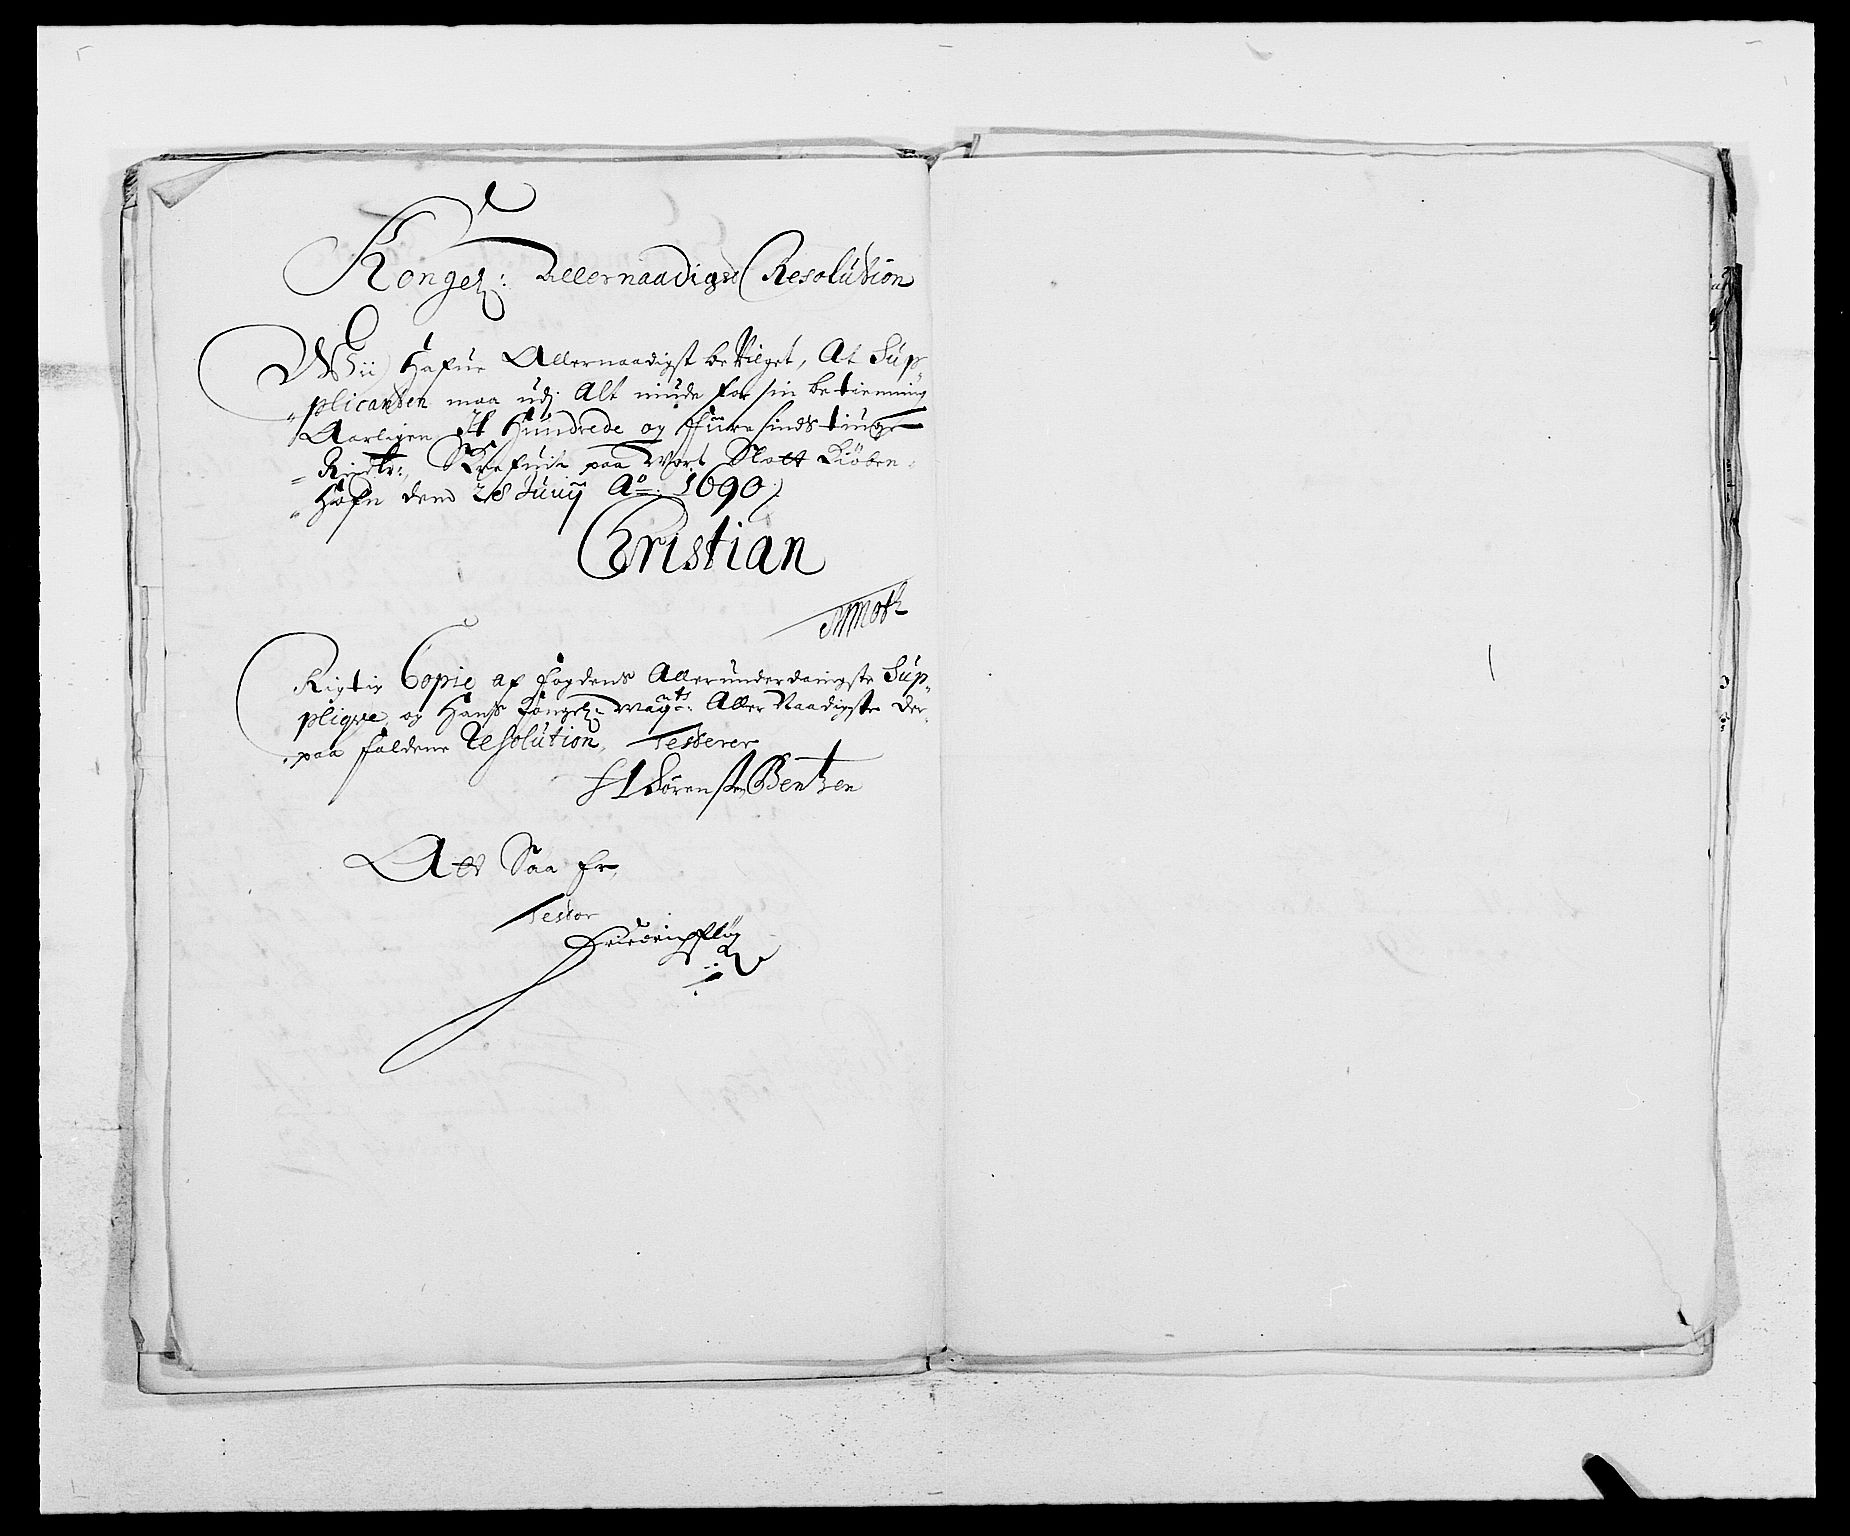 Kongel: Allernaadigste Resolution
Wii Hafue Allernaadigst bevilget, At Sup„
„plicanten maa udj Alt niude for sin betienning
Aarligen Et Hundrede og fiiresindstiufge
„Rixdr: Skrefuit paa Vort Slott Kiøben„
„Hafn dend 28 Junij Ao: 1690
Christian
Moth
Rigtig Copie af fogdens Allerunderdanigste Sup„
pliqve, og Hans Kongel: May:ts Aller Naadigste der„
„paa faldene Resolution, Testerer
Sørensen Bentzen
Att Saa Er,
Testor